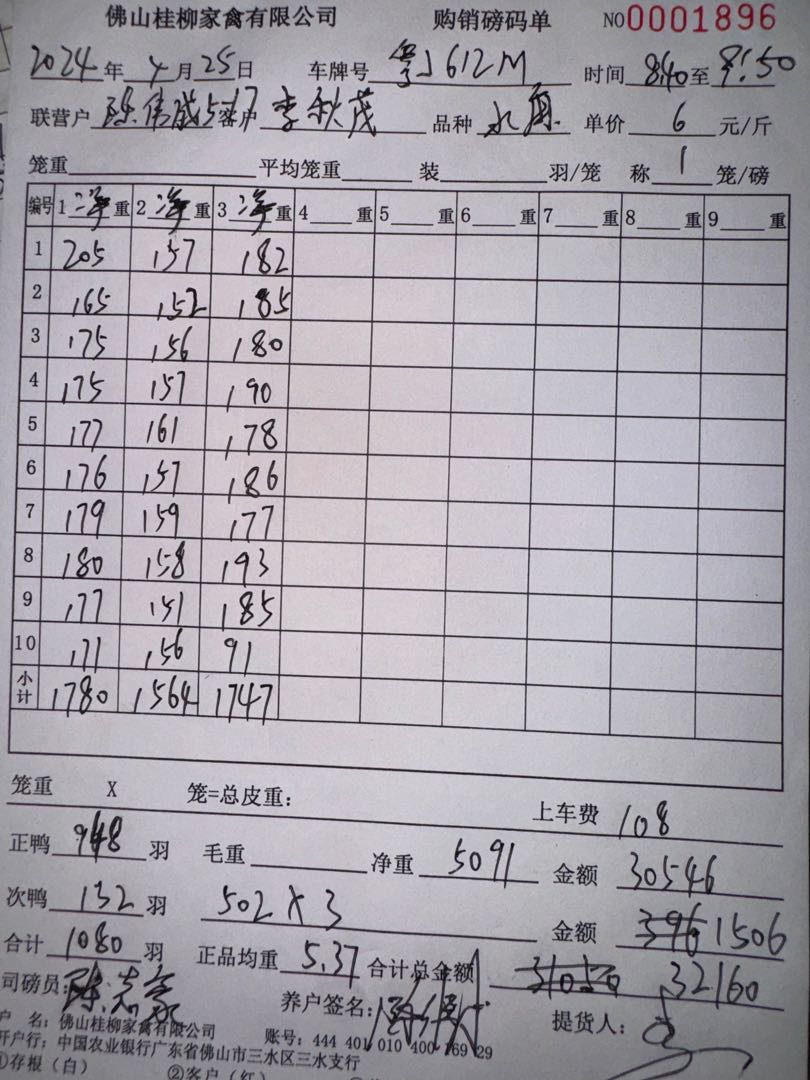 佛山桂柳家禽有限公司 购销磅码单 NO0001896
2024年4月25日 车牌号 粤J612M 时间 8:40至9:50
联营户 陈伟成517 客户 李秋茂 品种 单价 6 元/斤
笼重 平均笼重 装 羽/笼 称 1 笼/磅
编号 1 净 重 2 净 重 3 净 重 4 重 5 重 6 重 7 重 8 重 9 重
1 205 157 182
2 165 152 185
3 175 156 180
4 175 157 190
5 177 161 178
6 176 157 186
7 179 159 177
8 180 158 193
9 177 151 185
10 171 156 91
小计 1780 1564 1747
笼重 X 笼=总皮重: 上车费 108
正鸭 948 羽 毛重 净重 5091 金额 30546
次鸭 132 羽 502 X 3 金额 396 1506
合计 1080 羽 正品均重 5.37 合计总金额 31050 32160
司磅员: 陈志豪 养户签名: 提货人:
户 名: 佛山桂柳家禽有限公司 账号: 444 401 010 400 169 29
开户行: 中国农业银行广东省佛山市三水区三水支行
①存根(白) ②客户(红)